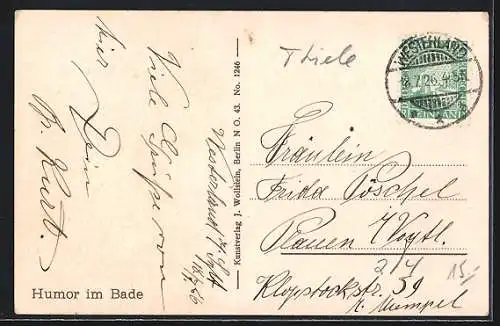 Viele Grüsse von
hier
Dein
Kurt.
Westerland / Sylt
18/7.26
Humor im Bade
Kunstverlag J. Wolfstein, Berlin N O. 43. No. 1246
Thiele
WESTERLAND
18.7.26. 4-5N
Fräulein
Frida Pöschel
Plauen i/Vogtl.
Klopstockstr. 39
b. Mempel
2/4
15,-